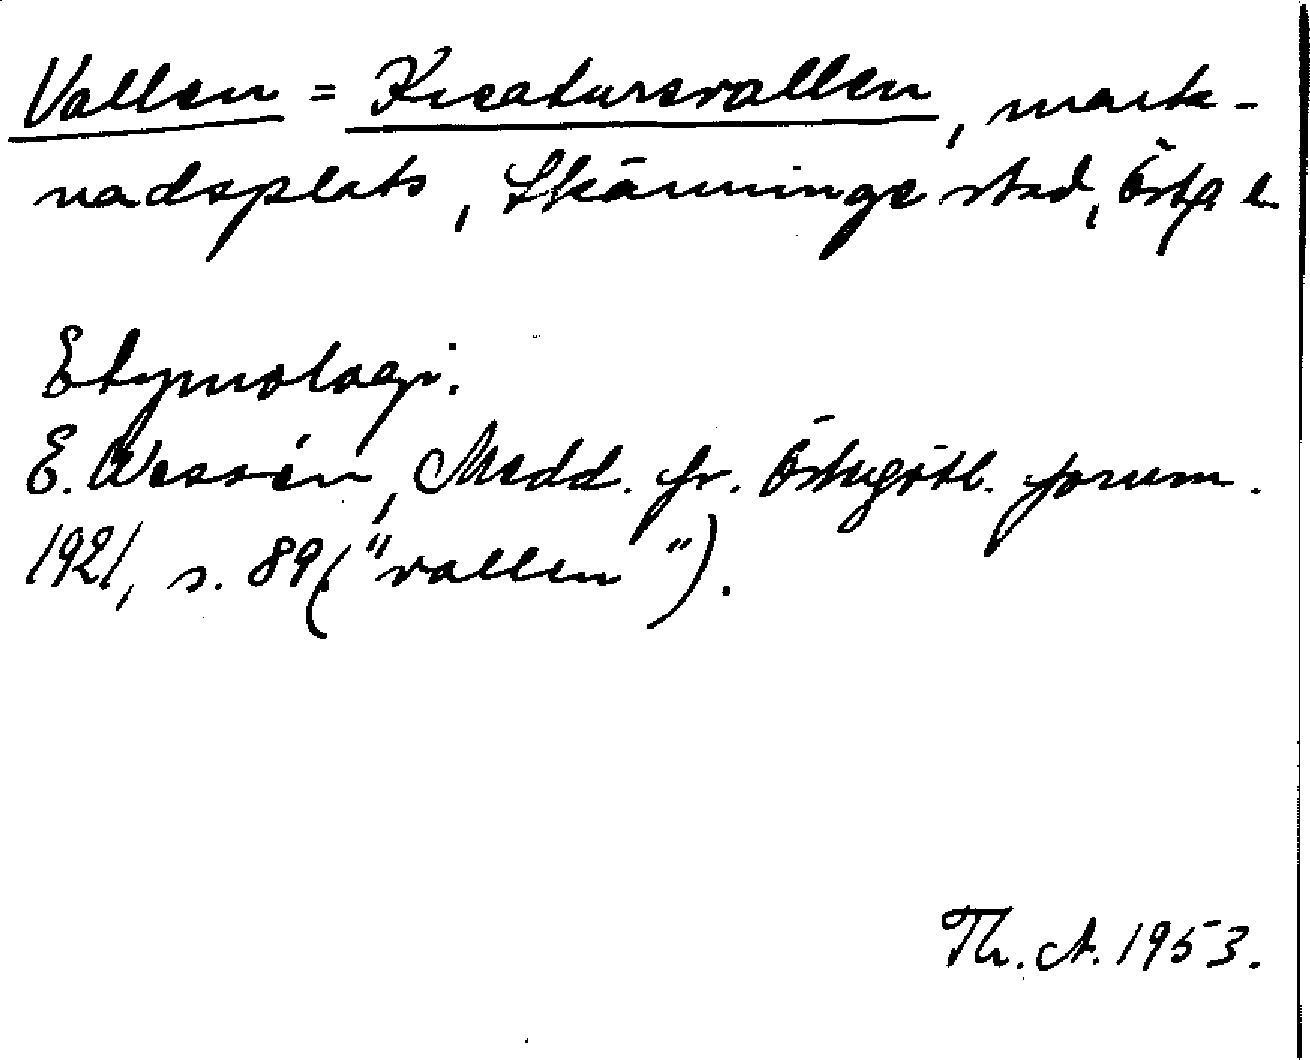 Vallen = Kreatursvallen, mark-
nadsplats, Skänninge stad, Östg l.
Etymologi.
E. Wessén, Medd. fr. Östergötl. fornm.
1921, s. 89 ("vallen").
Th. A. 1953.